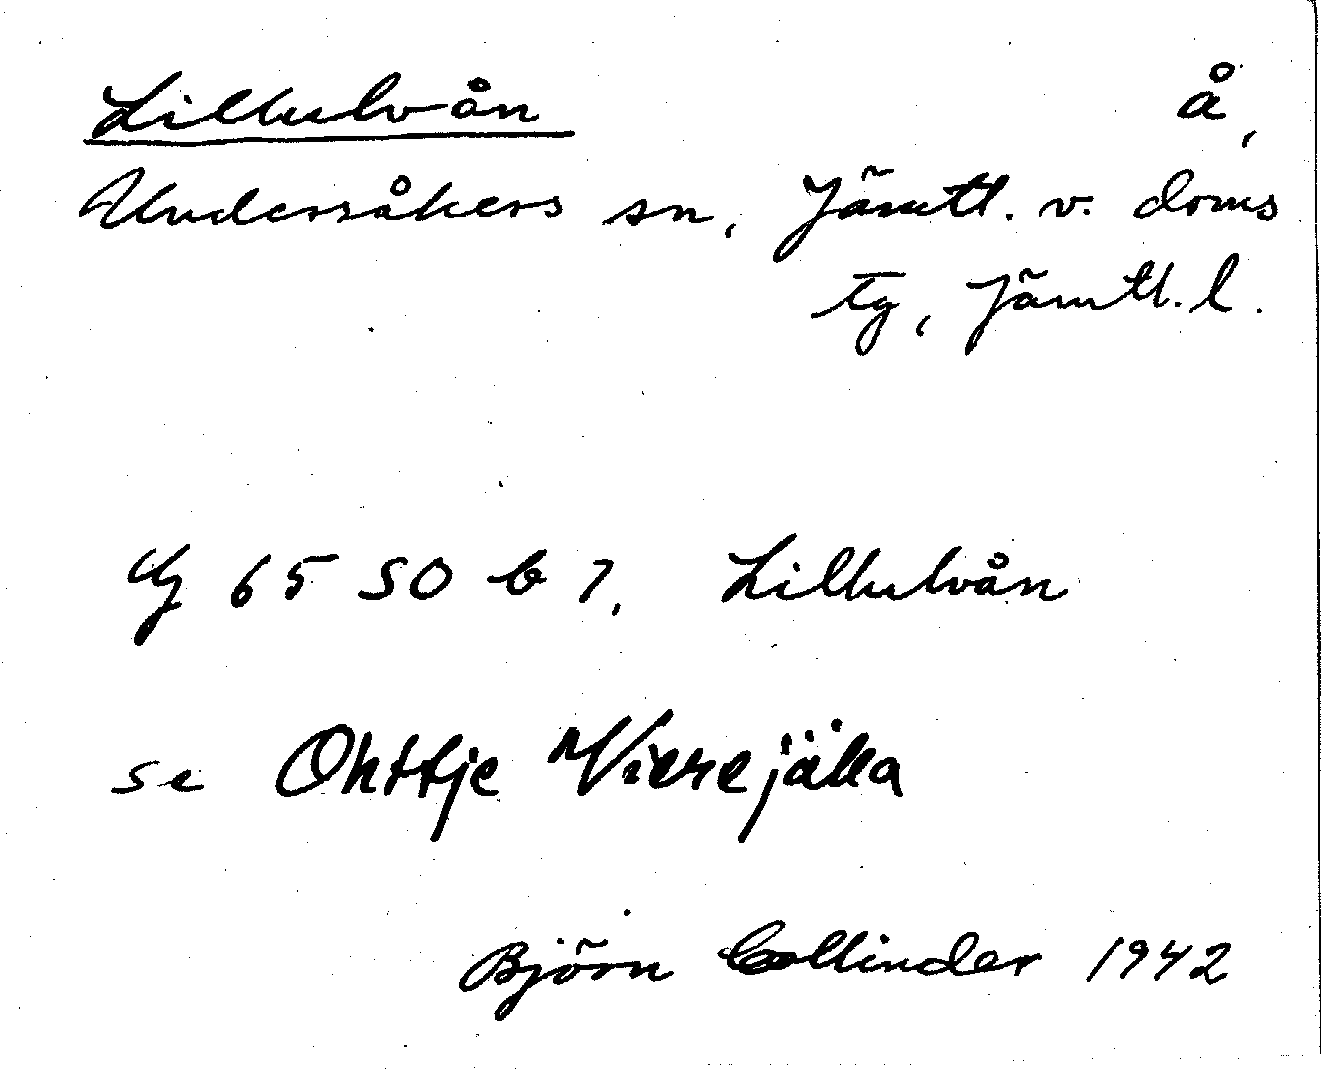 Lillulvån å,
Undersåkers sn, Jämtl. v. doms
tg, Jämtl. l.
Gj 65 SO b 7. Lillulvån
se Ohttje Vierejåkka
Björn Collinder 1942